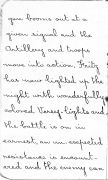 gun booms out at a
given signal and the
Artillery and troops
move into action. Fritz
has now lighted up the
night with wonderfully
colored Verey lights and
the battle is on in
earnest, an un-expected
resistance is encount-
ered and the enemy can